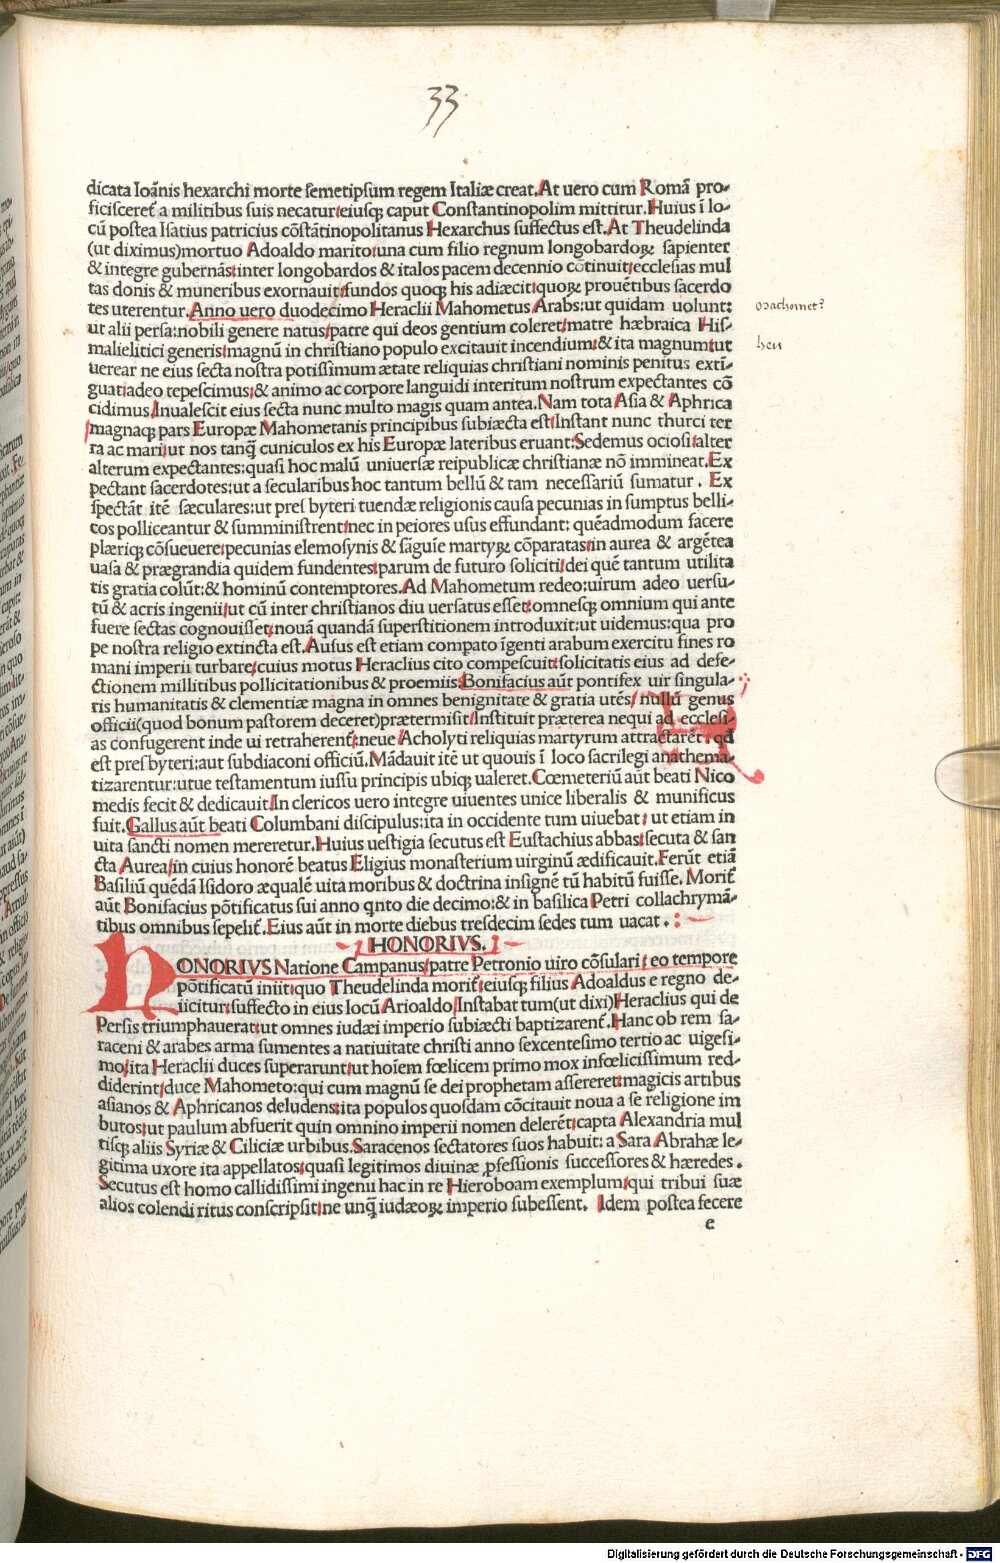 33
dicata Ioãnis hexarchi morte ſemetipſum regem Italiæ creat. At uero cum Romã pro-
ficiſceret̃ a militibus ſuis necatur: eiuſq; caput Conſtantinopolim mittitur. Huius ĩ lo-
cũ poſtea Iſatius patricius cõſtãtinopolitanus Hexarchus ſuffectus eſt. At Theudelinda
(ut diximus) mortuo Adoaldo marito: una cum filio regnum longobardoꝝ ſapienter
& integre gubernãs: inter longobardos & italos pacem decennio cõtinuit: eccleſias mul
tas donis & muneribus exornauit: fundos quoq; his adiæcit: quoꝝ prouẽtibus ſacerdo
tes uterentur. Anno uero duodecimo Heraclii Mahometus Arabs: ut quidam uolunt:
machomet?
ut alii perſa: nobili genere natus: patre qui deos gentium coleret: matre hæbraica Hiſ-
malielitici generis: magnũ in chriſtiano populo excitauit incendium: & ita magnum: ut
heu
uerear ne eius ſecta noſtra potiſſimum ætate reliquias chriſtiani nominis penitus exti-
guat: adeo tepeſcimus: & animo ac corpore languidi interitum noſtrum expectantes cõ
cidimus. Inualeſcit eius ſecta nunc multo magis quam antea. Nam tota Aſia & Aphrica
magnaq; pars Europæ Mahometanis principibus ſubiæcta eſt: Inſtant nunc thurci ter
ra ac mari: ut nos tanq̃ cuniculos ex his Europæ lateribus eruant: Sedemus ocioſi: alter
alterum expectantes: quaſi hoc malũ uniuerſæ reipublicæ chriſtianæ nõ immineat. Ex
pectant ſacerdotes: ut a ſecularibus hoc tantum bellũ & tam neceſſariũ ſumatur. Ex
ſpectãt itẽ ſæculares: ut preſbyteri tuendæ religionis cauſa pecunias in ſumptus belli-
cos polliceantur & ſumminiſtrent: nec in peiores uſus effundant: quẽadmodum facere
plæriq; cõſueuere: pecunias elemoſynis & ſãguĩe martyꝝ cõparatas: in aurea & argẽtea
uaſa & prægrandia quidem fundentes: parum de futuro ſoliciti: dei quẽ tantum utilita
tis gratia colũt: & hominũ contemptores. Ad Mahometum redeo: uirum adeo uerſu-
tũ & acris ingenii: ut cũ inter chriſtianos diu uerſatus eſſet: omneſq; omnium qui ante
fuere ſectas cognouiſſet: nouã quandã ſuperſtitionem introduxit: ut uidemus: qua pro
pe noſtra religio extincta eſt. Auſus eſt etiam compato ĩgenti arabum exercitu fines ro
mani imperii turbare: cuius motus Heraclius cito compeſcuit: ſolicitatis eius ad defe-
ctionem millitibus pollicitationibus & proemiis: Bonifacius aũt pontifex uir ſingula-
ris humanitatis & clementiæ magna in omnes benignitate & gratia utẽs: nullũ genus
officii (quod bonum paſtorem deceret) prætermiſit: Inſtituit præterea nequi ad eccleſi-
as confugerent inde ui retraherent̃: neue Acholyti reliquias martyrum attractarẽt. qd
eſt preſbyteri: aut ſubdiaconi officiũ. Mãdauit itẽ ut quouis ĩ loco ſacrilegi anathema-
tizarentur: utue teſtamentum iuſſu principis ubiq; ualeret. Cœmeteriũ aũt beati Nico
medis fecit & dedicauit. In clericos uero integre uiuentes unice liberalis & munificus
fuit. Gallus aũt beati Columbani diſcipulus: ita in occidente tum uiuebat: ut etiam in
uita ſancti nomen mereretur. Huius ueſtigia ſecutus eſt Euſtachius abbas: ſecuta & ſan
cta Aurea: in cuius honorẽ beatus Eligius monaſterium uirginũ ædificauit. Ferũt etiã
Baſiliũ quẽdã Iſidoro æqualẽ uita moribus & doctrina inſignẽ tũ habitũ fuiſſe. Morit̃
aũt Bonifacius põtificatus ſui anno qnto die decimo: & in baſilica Petri collachrymã-
tibus omnibus ſepelit̃. Eius aũt in morte diebus tresdecim ſedes tum uacat.
HONORIVS.
HONORIVS Natione Campanus: patre Petronio uiro cõſulari: eo tempore
põtificatũ iniit: quo Theudelinda morit̃: eiuſq; filius Adoaldus e regno de-
iicitur: ſuffecto in eius locũ Arioaldo: Inſtabat tum (ut dixi) Heraclius qui de
Perſis triumphauerat: ut omnes iudæi imperio ſubiæcti baptizarent̃. Hanc ob rem ſa-
raceni & arabes arma ſumentes a natiuitate chriſti anno ſexcenteſimo tertio ac uigeſi-
mo: ita Heraclii duces ſuperarunt: ut hoĩem fœlicem primo mox infœliciſſimum red-
diderint: duce Mahometo: qui cum magnũ ſe dei prophetam aſſereret: magicis artibus
aſianos & Aphricanos deludens: ita populos quoſdam cõcitauit noua a ſe religione im
butos: ut paulum abfuerit quin omnino imperii nomen delerẽt: capta Alexandria mul
tiſq; aliis Syriæ & Ciliciæ urbibus. Saracenos ſectatores ſuos habuit: a Sara Abrahæ le-
gitima uxore ita appellatos: quaſi legitimos diuinæ ꝓfeſſionis ſucceſſores & hæredes.
Secutus eſt homo callidiſſimi ingenii hac in re Hieroboam exemplum: qui tribui ſuæ
alios colendi ritus conſcripſit: ne unq̃ iudæoꝝ imperio ſubeſſent. Idem poſtea fecere
e
Digitalisierung gefördert durch die Deutsche Forschungsgemeinschaft - DFG